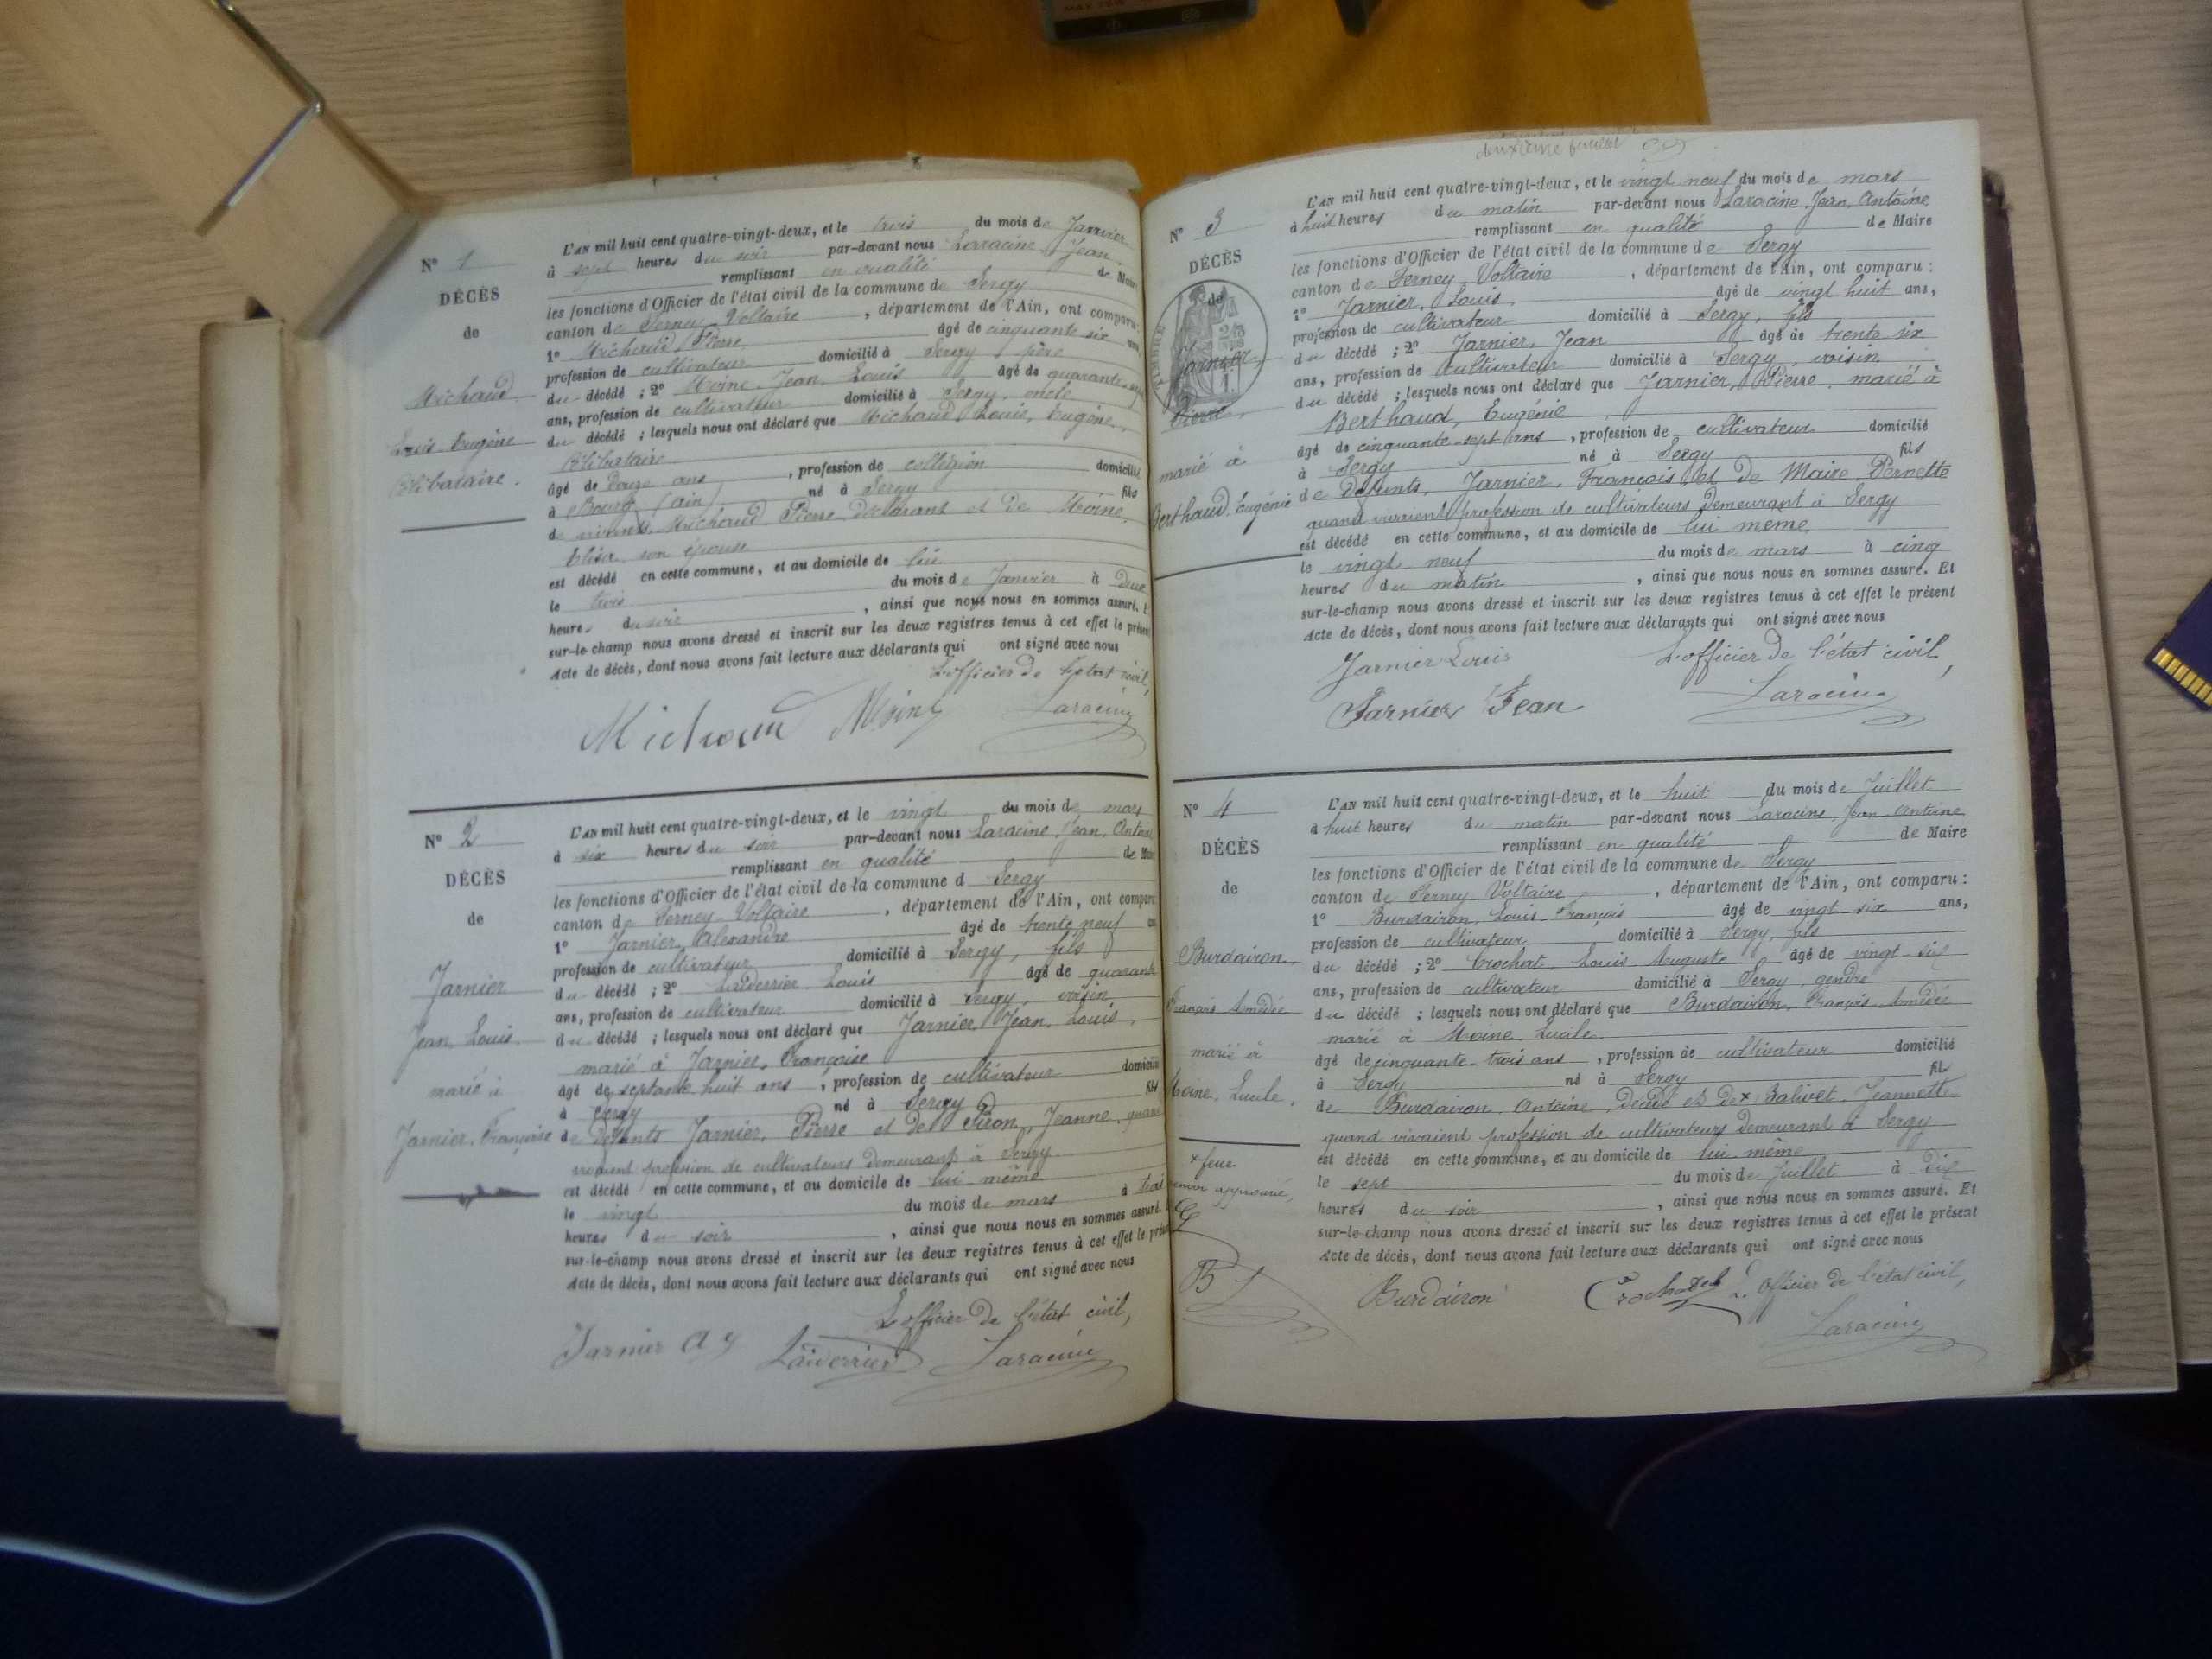 N° 1
DÉCÈS
de
Michaud
Louis Eugène
Célibataire.
L'AN mil huit cent quatre-vingt-deux, et le trois du mois de Janvier
à sept heures du soir par-devant nous Laracine, Jean,
remplissant en qualité de Maire
les fonctions d'Officier de l'état civil de la commune de Sergy
canton de Ferney-Voltaire, département de l'Ain, ont comparu:
1° Michaud Pierre âgé de cinquante six ans
profession de cultivateur domicilié à Sergy père
du décédé ; 2° Moine Jean Louis âgé de quarante
ans, profession de cultivateur domicilié à Sergy, oncle
du décédé ; lesquels nous ont déclaré que Michaud, Louis, Eugène,
Célibataire
âgé de douze ans, profession de collégien domicilié
à Bourg (Ain) né à Sergy fils
de vivants Michaud Pierre déclarant et de Moine,
Elisa son épouse
est décédé en cette commune, et au domicile de lui
le trois du mois de Janvier à deux
heures du soir, ainsi que nous nous en sommes assuré. Et
sur-le-champ nous avons dressé et inscrit sur les deux registres tenus à cet effet le présent
Acte de décès, dont nous avons fait lecture aux déclarants qui ont signé avec nous
L'officier de l'état civil,
Michaud Moine Laracine
N° 2
DÉCÈS
de
Jarnier
Jean Louis
marié à
Jarnier, Françoise
L'AN mil huit cent quatre-vingt-deux, et le vingt du mois de mars
à six heures du soir par-devant nous Laracine, Jean, Antoine
remplissant en qualité de Maire
les fonctions d'Officier de l'état civil de la commune d Sergy
canton de Ferney-Voltaire, département de l'Ain, ont comparu
1° Jarnier, Alexandre âgé de trente neuf ans
profession de cultivateur domicilié à Sergy, fils
du décédé ; 2° Laverrier Louis âgé de quarante
ans, profession de cultivateur domicilié à Sergy, voisin,
du décédé ; lesquels nous ont déclaré que Jarnier, Jean, Louis,
marié à Jarnier, Françoise
âgé de septante huit ans, profession de cultivateur domicilié
à Sergy né à Sergy fils
de défunts Jarnier, Pierre et de Piron, Jeanne, quand
vivaient profession de cultivateurs demeurant à Sergy
est décédé en cette commune, et au domicile de lui même
le vingt du mois de mars à trois
heures du soir, ainsi que nous nous en sommes assuré. Et
sur-le-champ nous avons dressé et inscrit sur les deux registres tenus à cet effet le présent
Acte de décès, dont nous avons fait lecture aux déclarants qui ont signé avec nous
L'officier de l'état civil,
Jarnier Laverrier Laracine
deuxième feuillet
N° 3
DÉCÈS
de
TIMBRE
Jarnier,
Pierre,
marié à
Berthaud Eugénie
L'AN mil huit cent quatre-vingt-deux, et le vingt neuf du mois de mars
à huit heures du matin par-devant nous Laracine, Jean, Antoine
remplissant en qualité de Maire
les fonctions d'Officier de l'état civil de la commune de Sergy
canton de Ferney-Voltaire, département de l'Ain, ont comparu:
1° Jarnier, Louis, âgé de vingt huit ans,
profession de cultivateur domicilié à Sergy, fils
du décédé ; 2° Jarnier, Jean âgé de trente six
ans, profession de cultivateur domicilié à Sergy, voisin
du décédé ; lesquels nous ont déclaré que Jarnier, Pierre, marié à
Berthaud, Eugénie
âgé de cinquante-sept ans, profession de cultivateur domicilié
à Sergy né à Sergy fils
de défunts, Jarnier, François et de Maire Pernette
quand vivaient profession de cultivateurs demeurant à Sergy
est décédé en cette commune, et au domicile de lui même
le vingt neuf du mois de mars à cinq
heures du matin, ainsi que nous nous en sommes assuré. Et
sur-le-champ nous avons dressé et inscrit sur les deux registres tenus à cet effet le présent
Acte de décès, dont nous avons fait lecture aux déclarants qui ont signé avec nous
Jarnier Louis L'officier de l'état civil,
Jarnier Jean Laracine
N° 4
DÉCÈS
de
Burdairon
François Amédée
marié à
Moine, Lucile,
* feue
B L
L'AN mil huit cent quatre-vingt-deux, et le huit du mois de Juillet
à huit heures du matin par-devant nous Laracine Jean Antoine
remplissant en qualité de Maire
les fonctions d'Officier de l'état civil de la commune de Sergy
canton de Ferney-Voltaire, département de l'Ain, ont comparu:
1° Burdairon, Louis François âgé de vingt-six ans,
profession de cultivateur domicilié à Sergy, fils
du décédé ; 2° Crochat, Louis Auguste âgé de vingt-six
ans, profession de cultivateur domicilié à Sergy, gendre
du décédé ; lesquels nous ont déclaré que Burdairon, François, Amédée
marié à Moine, Lucile.
âgé de cinquante trois ans, profession de cultivateur domicilié
à Sergy né à Sergy fils
de Burdairon, Antoine, décédé et de * Balivet, Jeannette
quand vivaient profession de cultivateurs demeurant à Sergy
est décédé en cette commune, et au domicile de lui même
le sept du mois de Juillet à dix
heures du soir, ainsi que nous nous en sommes assuré. Et
sur-le-champ nous avons dressé et inscrit sur les deux registres tenus à cet effet le présent
Acte de décès, dont nous avons fait lecture aux déclarants qui ont signé avec nous
Burdairon Crochat L'officier de l'état civil,
Laracine